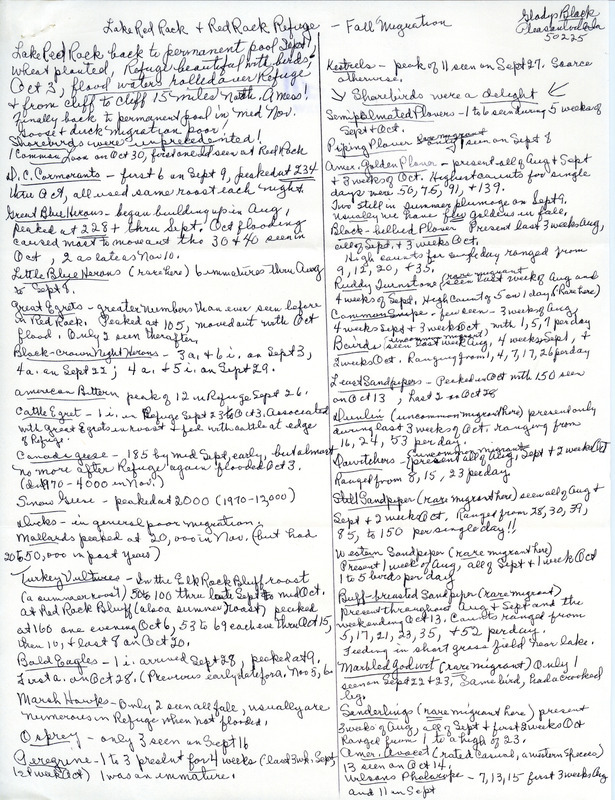 Lake Red Rock & Red Rock Refuge - Fall Migration
Gladys Black
Pleasantville, Ia
50225
Lake Red Rock back to permanent pool Sept 1,
wheat planted, Refuge beautiful with birds
Oct 3, flood waters rolled over Refuge
& from cliff to cliff 15 miles North. Ames!
Finally back to permanent pool in mid Nov.
Goose & duck migration poor!
Shorebirds were unprecedented!
1 Common Loon on Oct 30, first one I'd seen at Red Rock
D.C. Cormorants - first 6 on Sept 9, peaked at 234
thru Oct, all used same roost each night
Great Blue Herons - began building up in Aug,
peaked at 228+ thru Sept. Oct flooding
caused most to move out tho 30 & 40 seen in
Oct, 2 as late as Nov 10.
Little Blue Herons (rare here) 6 immatures thru Aug
& Sept 8.
Great Egrets - greater numbers than ever seen before
in Red Rock. Peaked at 105, moved out with Oct
flood. Only 2 seen thereafter.
Black-crown Night Herons - 3 a. & 6 i. on Sept 3,
4 a. on Sept 22; 4 a. & 5 i. on Sept 29.
American Bittern peak of 12 in Refuge Sept 26.
Cattle Egret - 1 i. in Refuge Sept 23 to Oct 3. Associated
with Great Egrets in roost & fed with cattle at edge
of Refuge.
Canada geese - 185 by mid Sept, early, but almost
no more after Refuge again flooded Oct 3.
(In 1970 - 4000 in Nov.)
Snow Geese - peaked at 2000 (1970-12,000)
Ducks - in general poor migration.
Mallards peaked at 20,000 in Nov. (but had
20 to 50,000 in past years)
Turkey Vultures - In the Elk Rock Bluff roost
(a summer roost) 50 to 100 thru late Sept to mid Oct.
at Red Rock Bluff (also a summer roost) peaked
at 166 one evening Oct 6, 53 to 69 each eve thru Oct 15,
then 10, & last 8 on Oct 20.
Bald Eagles - 1 i. arrived Sept 28, peaked at 9.
First a. on Oct 28. (Previous early date for a. Nov 5,
Marsh Hawks - Only 2 seen all fall, usually are
numerous in Refuge when not flooded.
Osprey - only 3 seen on Sept 16
Peregrine - 1 to 3 present for 4 weeks (last 3 wk. Sept,
1st week Oct) 1 was an immature.
Kestrels - peak of 11 seen on Sept 27. Scarce
otherwise.
Shorebirds were a delight
Semipalmated Plovers - 1 to 6 seen during 5 weeks of
Sept & Oct.
Piping Plover seen Sept 8
Amer. Golden Plover - present all of Aug & Sept
& 3 weeks of Oct. Highest counts for single
days were 50, 76, 91, & 139.
Two still in summer plumage on Sept 9.
Usually we have few goldens in fall.
Black-bellied Plover Present last 3 weeks Aug,
all of Sept. & 3 weeks Oct.
High counts for single day ranged from
9, 12, 20, & 35.
Ruddy Turnstone (rare migrant) seen last week of Aug and
4 weeks of Sept. High Count of 5 on 1 day (Rare here)
Common Snipe - few seen - 3 weeks of Aug,
4 weeks Sept & 3 weeks Oct, with 1, 5, 7 per day
Bairds (uncommon migrant) seen last week Aug, 4 weeks Sept, &
2 weeks Oct. Ranging from 1, 4, 7, 17, 26 per day
Least Sandpipers - Peaked in Oct with 150 seen
on Oct 13, last 2 on Oct 28
Dunlin (uncommon migrant here) present only
during last 3 weeks of Oct. ranging from
16, 24, 53 per day.
Dowitchers - (uncommon migrant) present all of Aug, Sept & 2 weeks Oct
Ranged from 8, 15, 23 per day
Stilt Sandpiper (rare migrant here) seen all of Aug &
Sept & 2 weeks Oct. Range from 28, 30, 39,
85, to 150 per single day!!
Western Sandpiper (rare migrant here)
Present 1 week of Aug, all of Sept & 1 week Oct
1 to 5 birds per day
Buff-breasted Sandpiper (rare migrant)
present throughout Aug & Sept and the
week ending Oct 13. Counts ranged from
5, 17, 21, 23, 35, & 52 per day.
Feeding in short grass field near lake.
Marbled godwit (rare migrant) Only 1
seen on Sept 22 & 23. Same bird, had a crooked
leg.
Sanderlings (rare migrant here) present
3 weeks of Aug, all of Sept & first 2 weeks Oct
Ranged from 1 to a high of 23.
Amer. Avocet (rated casual, a western species)
13 seen on Oct 14.
Wilsons Phalarope - 7, 13, 15 - first 3 weeks Aug
and 11 on Sept